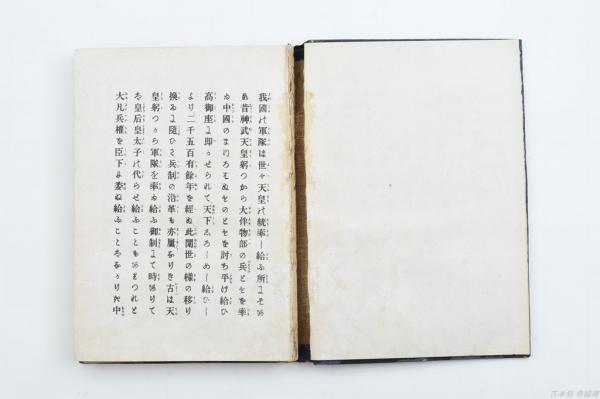 我國の軍隊は世々天皇の統率し給ふ所にそあ
る昔神武天皇躬つから大伴物部の兵ともを率
ゐ中國のまつろはぬものともを討ち平け給ひ
高御座に即かせられて天下しろしめし給ひし
より二千五百有餘年を經ぬ此間世の樣の移り
換るに隨ひて兵制の沿革も亦屢なりき古は天
皇躬つから軍隊を率ゐ給ふ御制にて時ありて
は皇后皇太子の代らせ給ふこともありつれと
大凡兵權を臣下に委ね給ふことはなかりき中